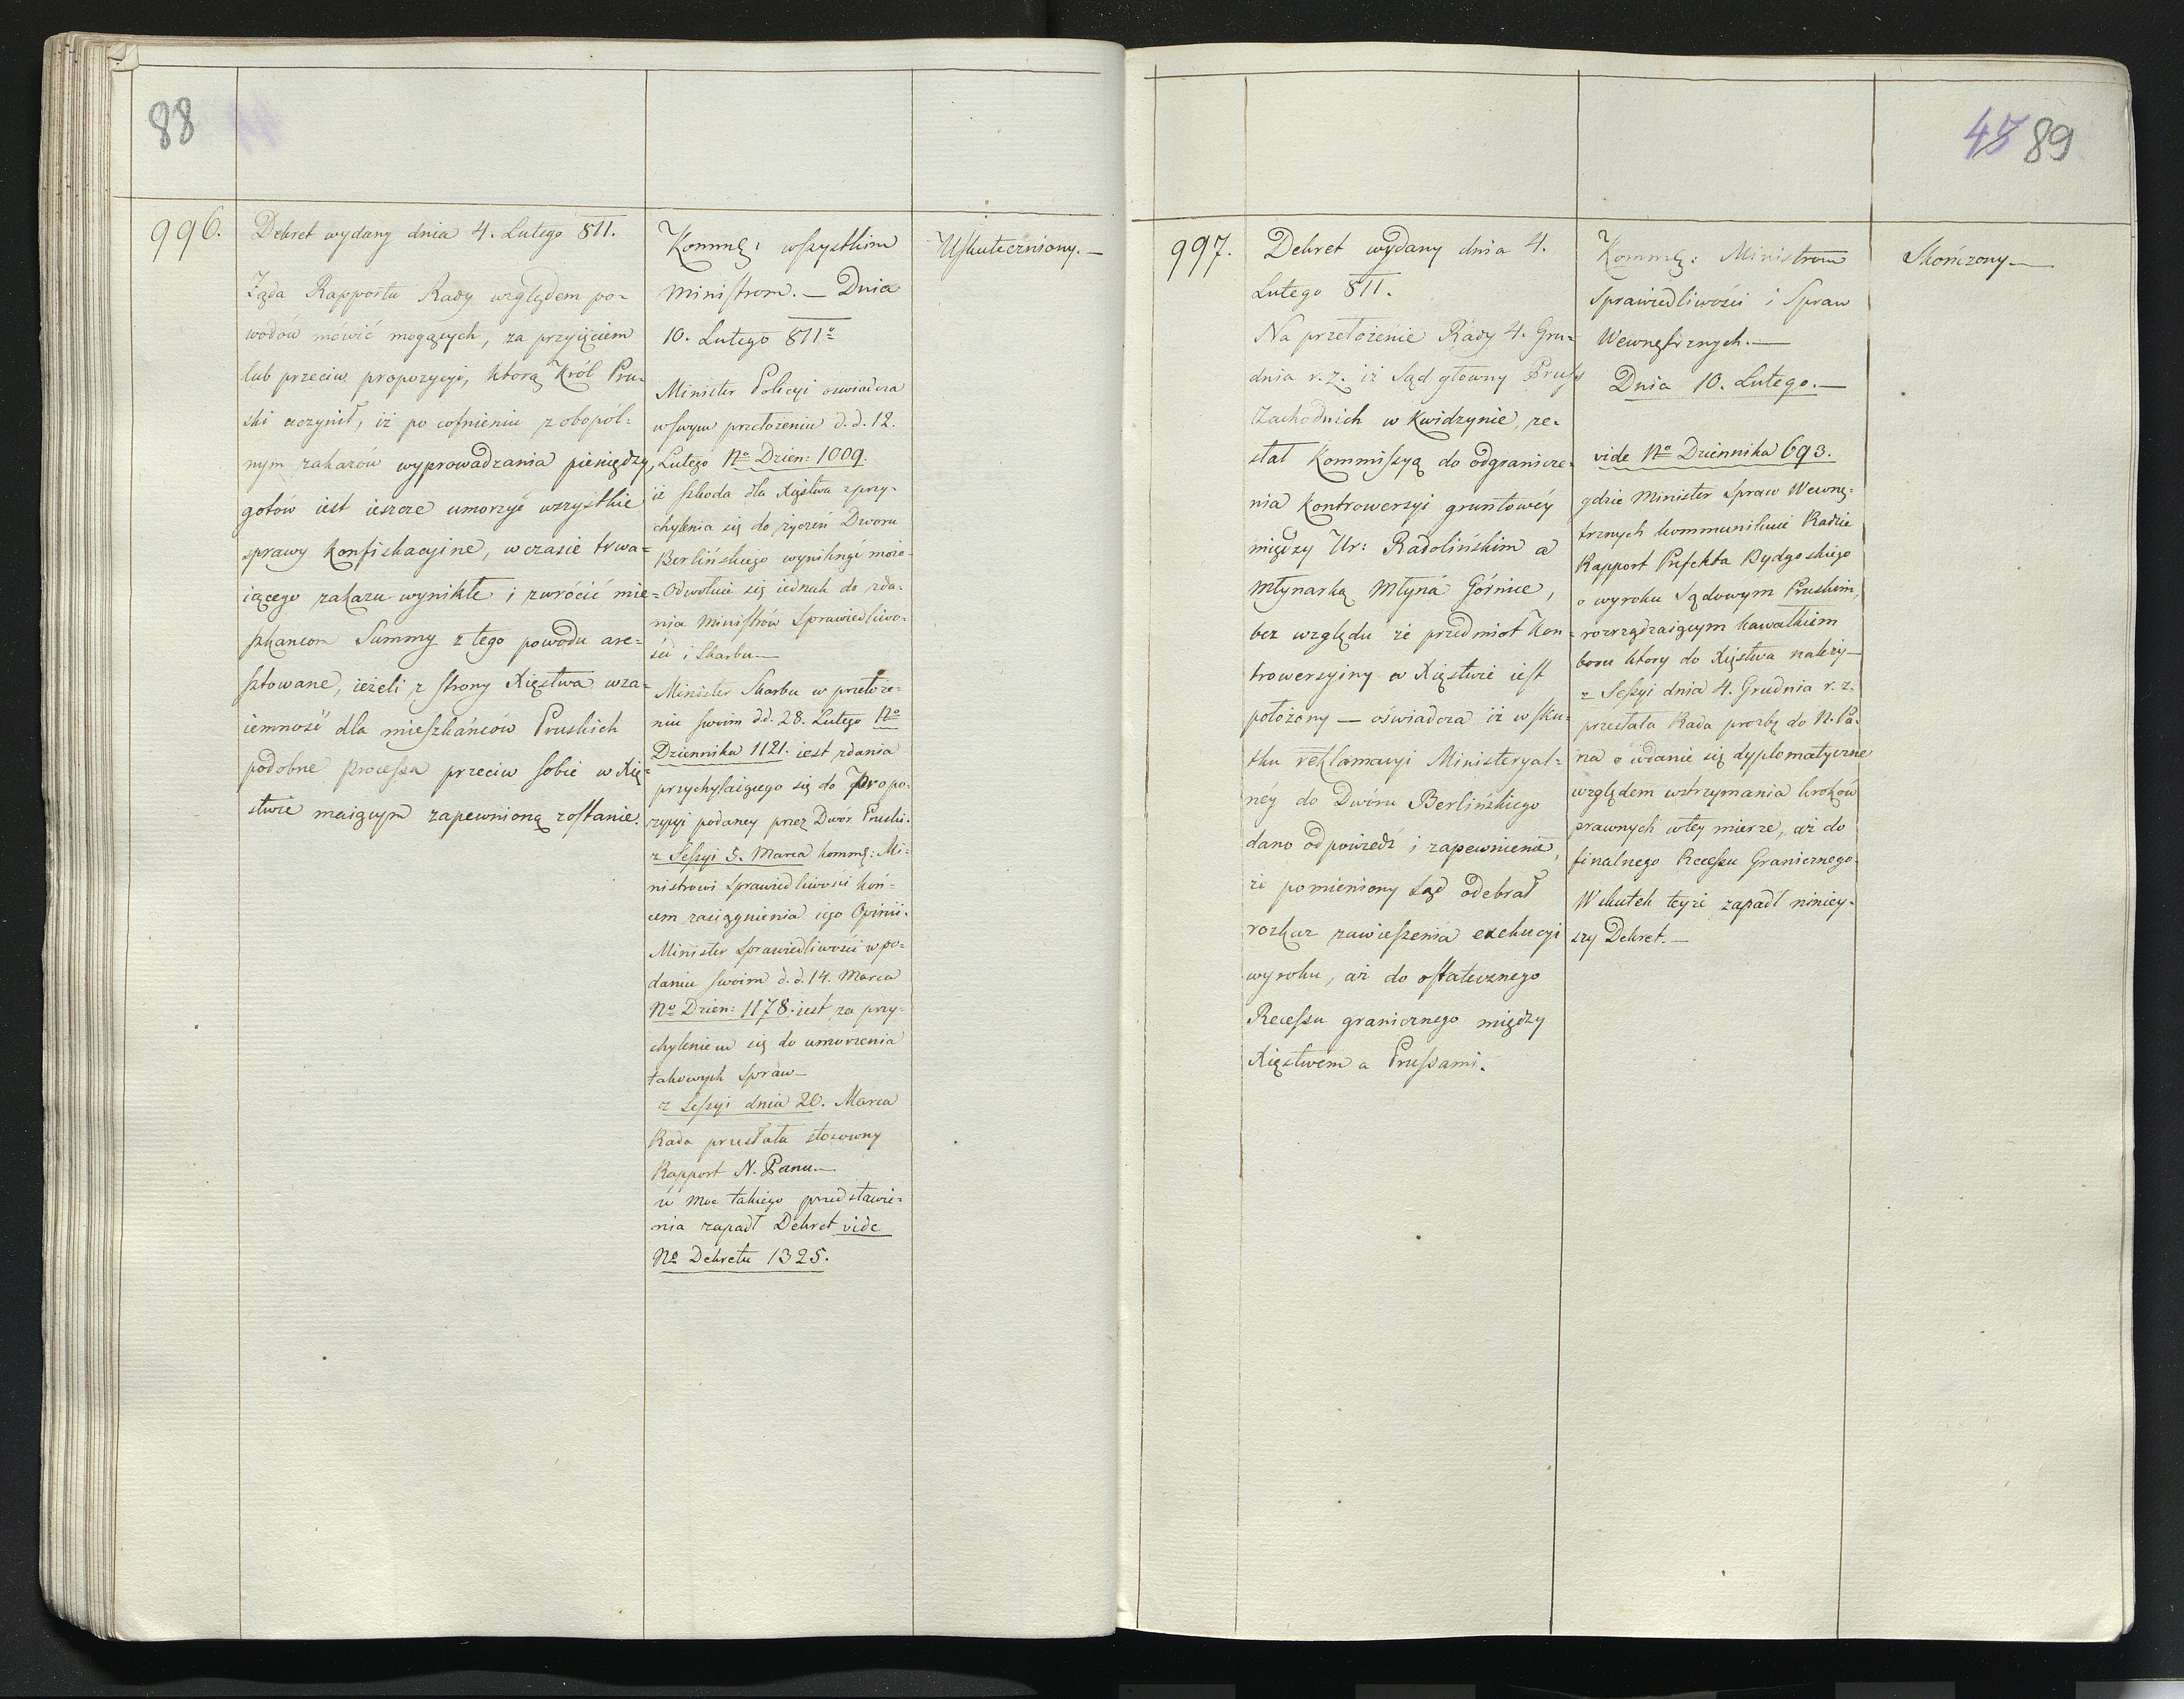 88
996.
Dekret wydany dnia 4. Lutego 811.
Żąda Rapportu Rady względem po=
wodów mówić mogących, za przyięciem
lub przeciw propozycyi, ktorą Król Pru=
ski uczynił, iż po cofnieniu zobopól=
nym zakazów wyprowadzania pieniędzy,
gotów iest ieszcze umorzyć wszystkie
sprawy konfiskacyine, w czasie trwa=
iącego zakazu wynikłe i zwrócić mie=
szkancom Summy z tego powodu are=
sztowane, ieżeli z strony Xięstwa wza=
iemność dla mieszkańców Pruskich
podobne processa przeciw sobie w Xię=
stwie maiącym zapewnioną zostanie.
Kommę: wszystkim
Ministrom. — Dnia
10. Lutego 811º
Minister Policyi oswiadcza
w swym przełożeniu d.d. 12.
Lutego Nº Dzien: 1009.
iż szkoda dla Xięstwa z przy=
chylenia się do życzeń Dworu
Berlińskiego wyniknąć może
Odwołuie się iednak do zda=
nia Ministrów Sprawiedliwo=
ści i Skarbu —
Minister Skarbu w przełoże=
niu swoim d.d. 28. Lutego Nº
Dziennika 1121. iest zdania
przychylaiącego się do propo=
zycyi podaney przez Dwór Pruski.
z Sessyi 5. Marca kommę: Mi=
nistrowi Sprawiedliwości koń=
cem zasiągnienia iego Opinii.
Minister Sprawiedliwości w po=
daniu swoim d.d. 14. Marca
Nº Dzien: 1178. iest za przy=
chyleniem się do umorzenia
takowych spraw —
z Sessyi dnia 20. Marca
Rada przesłała stosowny
Rapport N. Panu. —
w moc takiego przedstawie=
nia zapadł Dekret vide
Nº Dekretu 1325.
Uskuteczniony. —
45 89
997.
Dekret wydany dnia 4.
Lutego 811.
Na przełożenie Rady 4. Gru=
dnia r. z. iż Sąd głowny Pruss
Zachodnich w Kwidzynie, ze=
słał Kommissyą do odgranicze=
nia kontrowersyi gruntowéy
między Ur: Radolińskim a
młynarką Młyna Górnice,
bez względu że przedmiot kon=
trowersyiny w Xięstwie iest
położony — oświadcza iż w sku=
tku reklamacyi Ministeryal=
néy do Dworu Berlińskiego
dano odpowiedź i zapewnienie,
że pomieniony Sąd odebrał
rozkaz zawieszenia exekucyi
wyroku, aż do ostatecznego
Recessu granicznego między
Xięstwem a Prussami.
Kommę: Ministrom
Sprawiedliwosci i Spraw
Wewnętrznych. —
Dnia 10. Lutego. —
vide Nº Dziennika 693.
gdzie Minister Spraw Wewnę=
trznych kommunikuie Radzie
Rapport Prefekta Bydgoskiego
o wyroku Sądowym Pruskim,
rozrządzaiącym kawałkiem
boru ktory do Xięstwa należy —
z Sessyi dnia 4. Grudnia r. z.
przesłała Rada prozbę do N. Pa=
na o wdanie się dyplomatyczne
względem wstrzymania kroków
prawnych w tey mierze, aż do
finalnego Recessu Granicznego.
W skutek teyże zapadł niniey=
szy Dekret. —
Skończony —